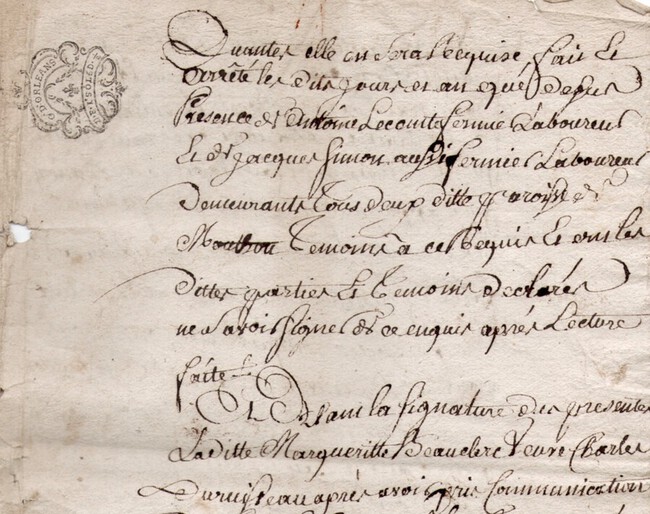 G. D'ORLEANS
Quantes elle en sera Requise, fait et
arrêté les dits jours et an que dessus
Presence de Antoine Lecomte fermier Laboureur
Et de Jacques Simon aussi fermier Laboureur
Demeurants tous deux ditte parroisse de
Temoins a ce Requis Et ont les
dittes parties Et Temoins declarés
ne savoir signer de ce enquis après Lecture
faite
Et avant la signature des presentes
La ditte Margueritte Beauclerc Veuve Charles
Duruisseau après avoir pris Communication